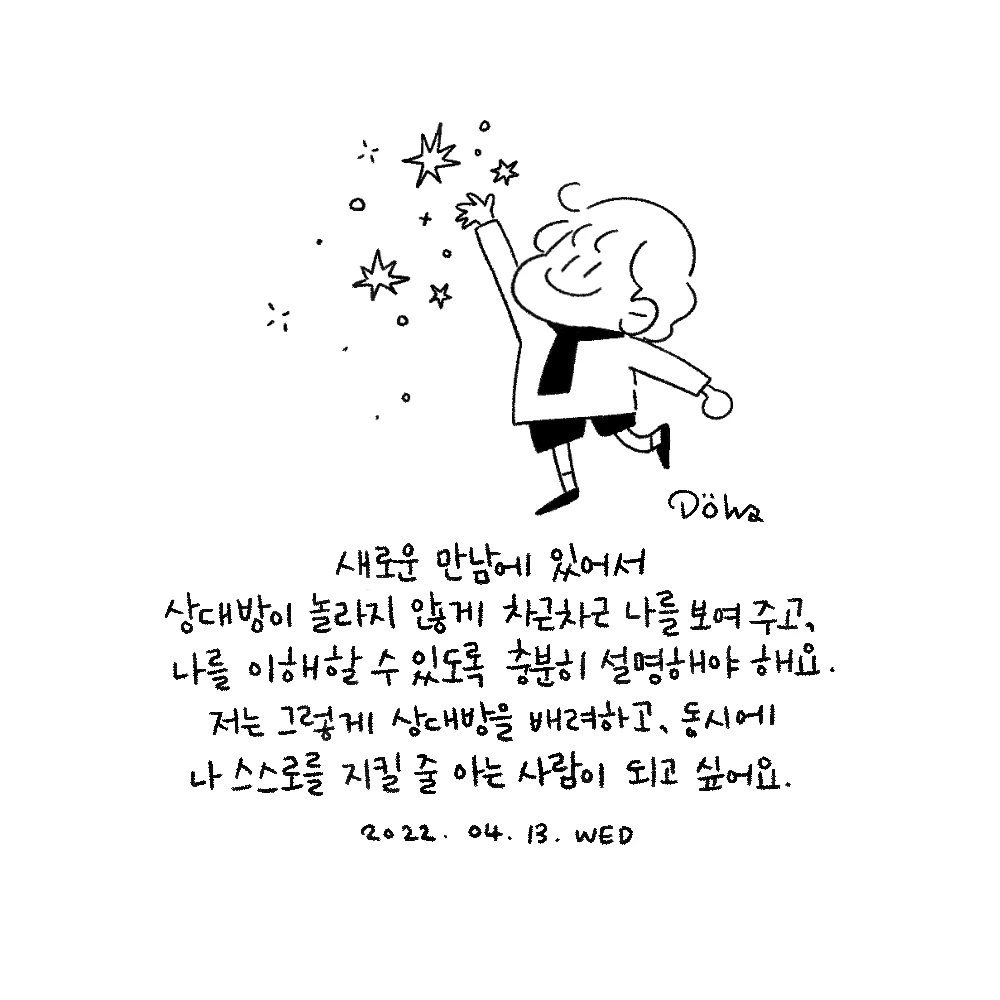 Döha
새로운 만남에 있어서
상대방이 놀라지 않게 차근차근 나를 보여 주고,
나를 이해할 수 있도록 충분히 설명해야 해요.
저는 그렇게 상대방을 배려하고, 동시에
나 스스로를 지킬 줄 아는 사람이 되고 싶어요.
2022. 04. 13. WED